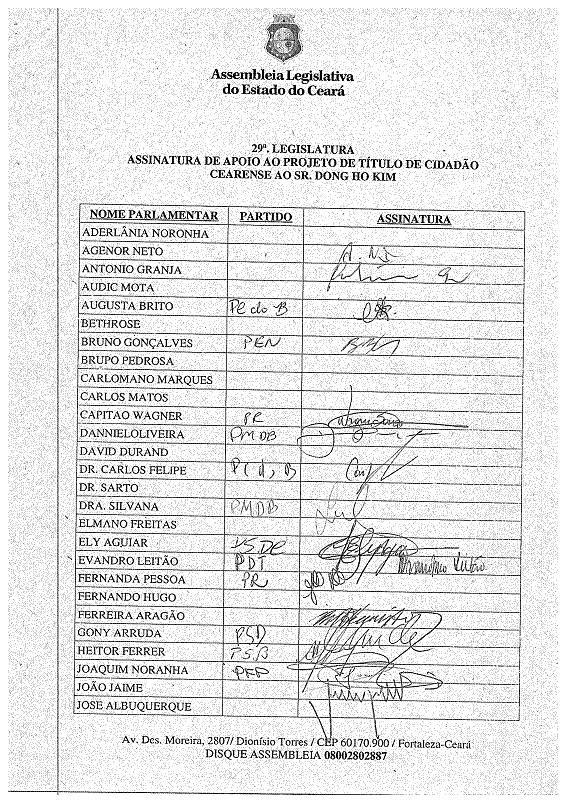 Assembleia Legislativa
do Estado do Ceará
29ª. LEGISLATURA
ASSINATURA DE APOIO AO PROJETO DE TÍTULO DE CIDADÃO
CEARENSE AO SR. DONG HO KIM
NOME PARLAMENTAR PARTIDO ASSINATURA
ADERLÂNIA NORONHA
AGENOR NETO A. N
ANTONIO GRANJA
AUDIC MOTA
AUGUSTA BRITO PC do B
BETHROSE
BRUNO GONÇALVES PEN
BRUPO PEDROSA
CARLOMANO MARQUES
CARLOS MATOS
CAPITAO WAGNER PR
DANNIELOLIVEIRA PMDB
DAVID DURAND
DR. CARLOS FELIPE PCd, B
DR. SARTO
DRA. SILVANA PMDB
ELMANO FREITAS
ELY AGUIAR PSDC
EVANDRO LEITÃO PDT Leitão
FERNANDA PESSOA PR
FERNANDO HUGO
FERREIRA ARAGÃO
GONY ARRUDA PSD
HEITOR FERRER PSB
JOAQUIM NORANHA
JOÃO JAIME
JOSE ALBUQUERQUE
Av. Des. Moreira, 2807/ Dionísio Torres / CEP 60170.900 / Fortaleza-Ceará
DISQUE ASSEMBLEIA 08002802887